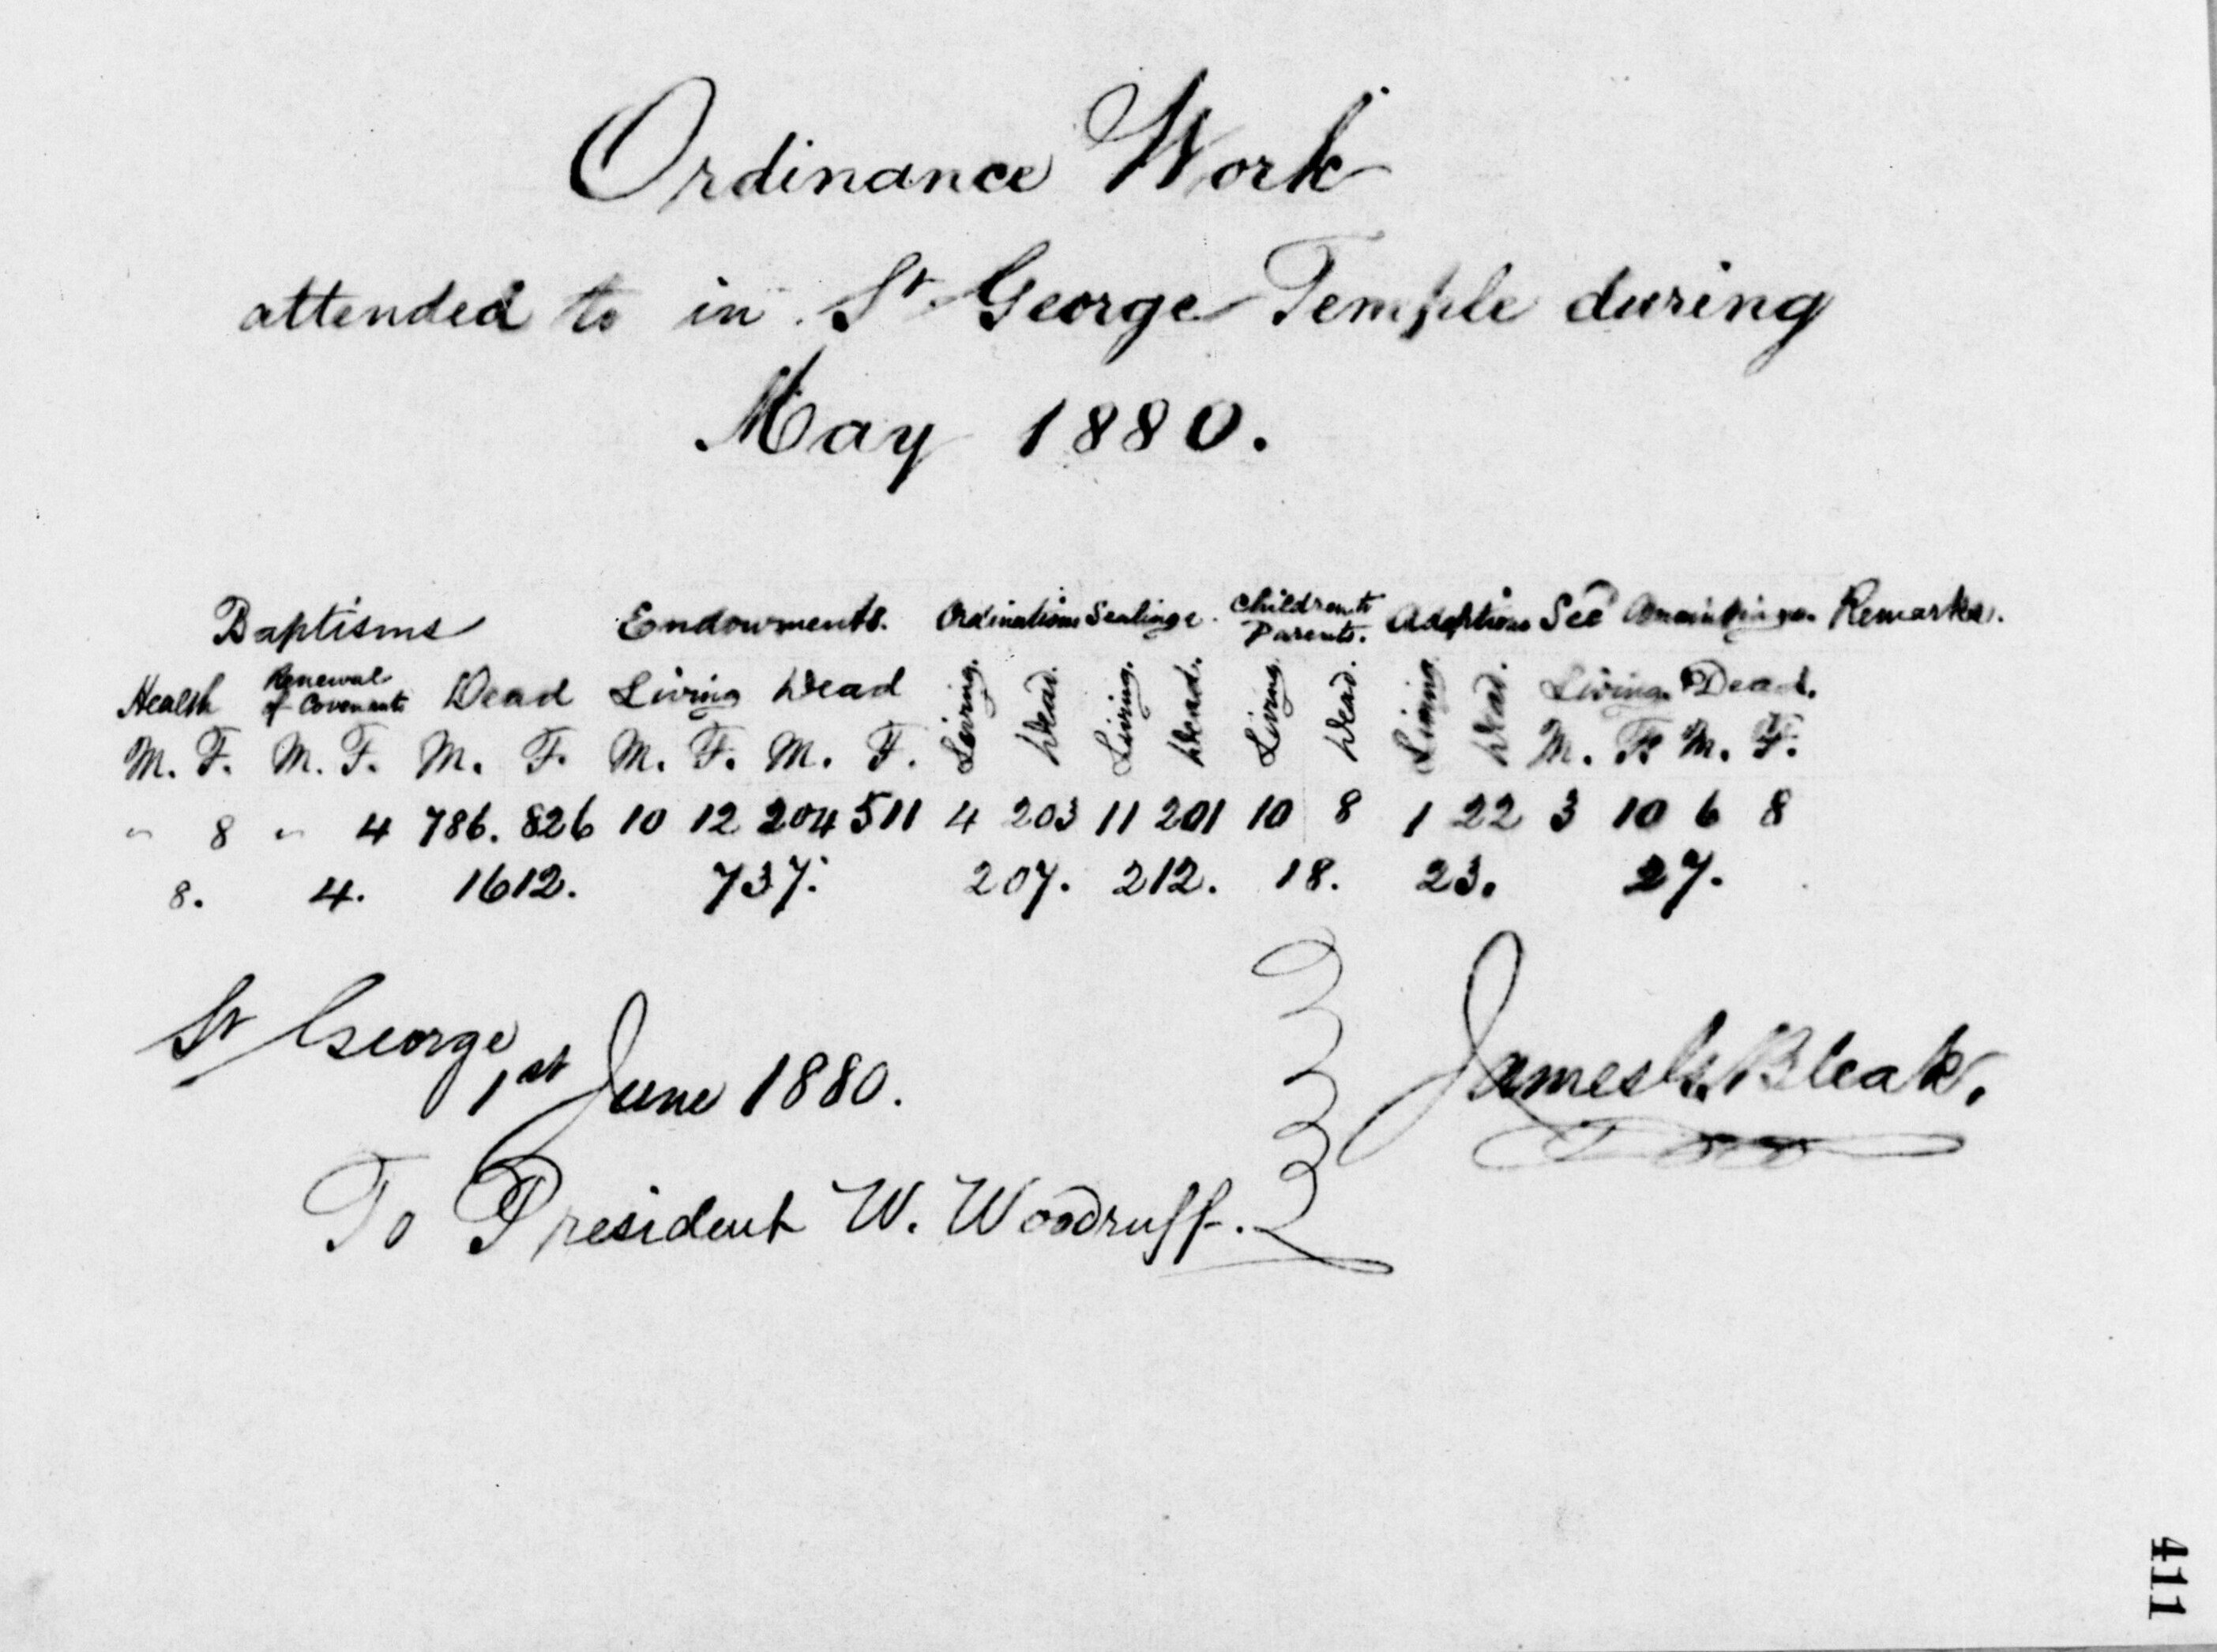 Ordinance Work
attended to in St George Temple during
May 1880.
Baptisms Endowments. Ordinations Sealings. Children to Parents. Adoptions Sec Anointings. Remarks.
Health Renewal of Covenants Dead Living Dead Living. Dead. Living. Dead. Living. Dead. Living Dead. Living Dead.
M. F. M. F. M. F. M. F. M. F. M. F. M. F.
" 8 " 4 786. 826 10 12 204 511 4 203 11 201 10 8 1 22 3 10 6 8
8. 4. 1612. 737. 207. 212. 18. 23. 27.
St George
1st June 1880.
James G. Bleak.
To President W. Woodruff.
411